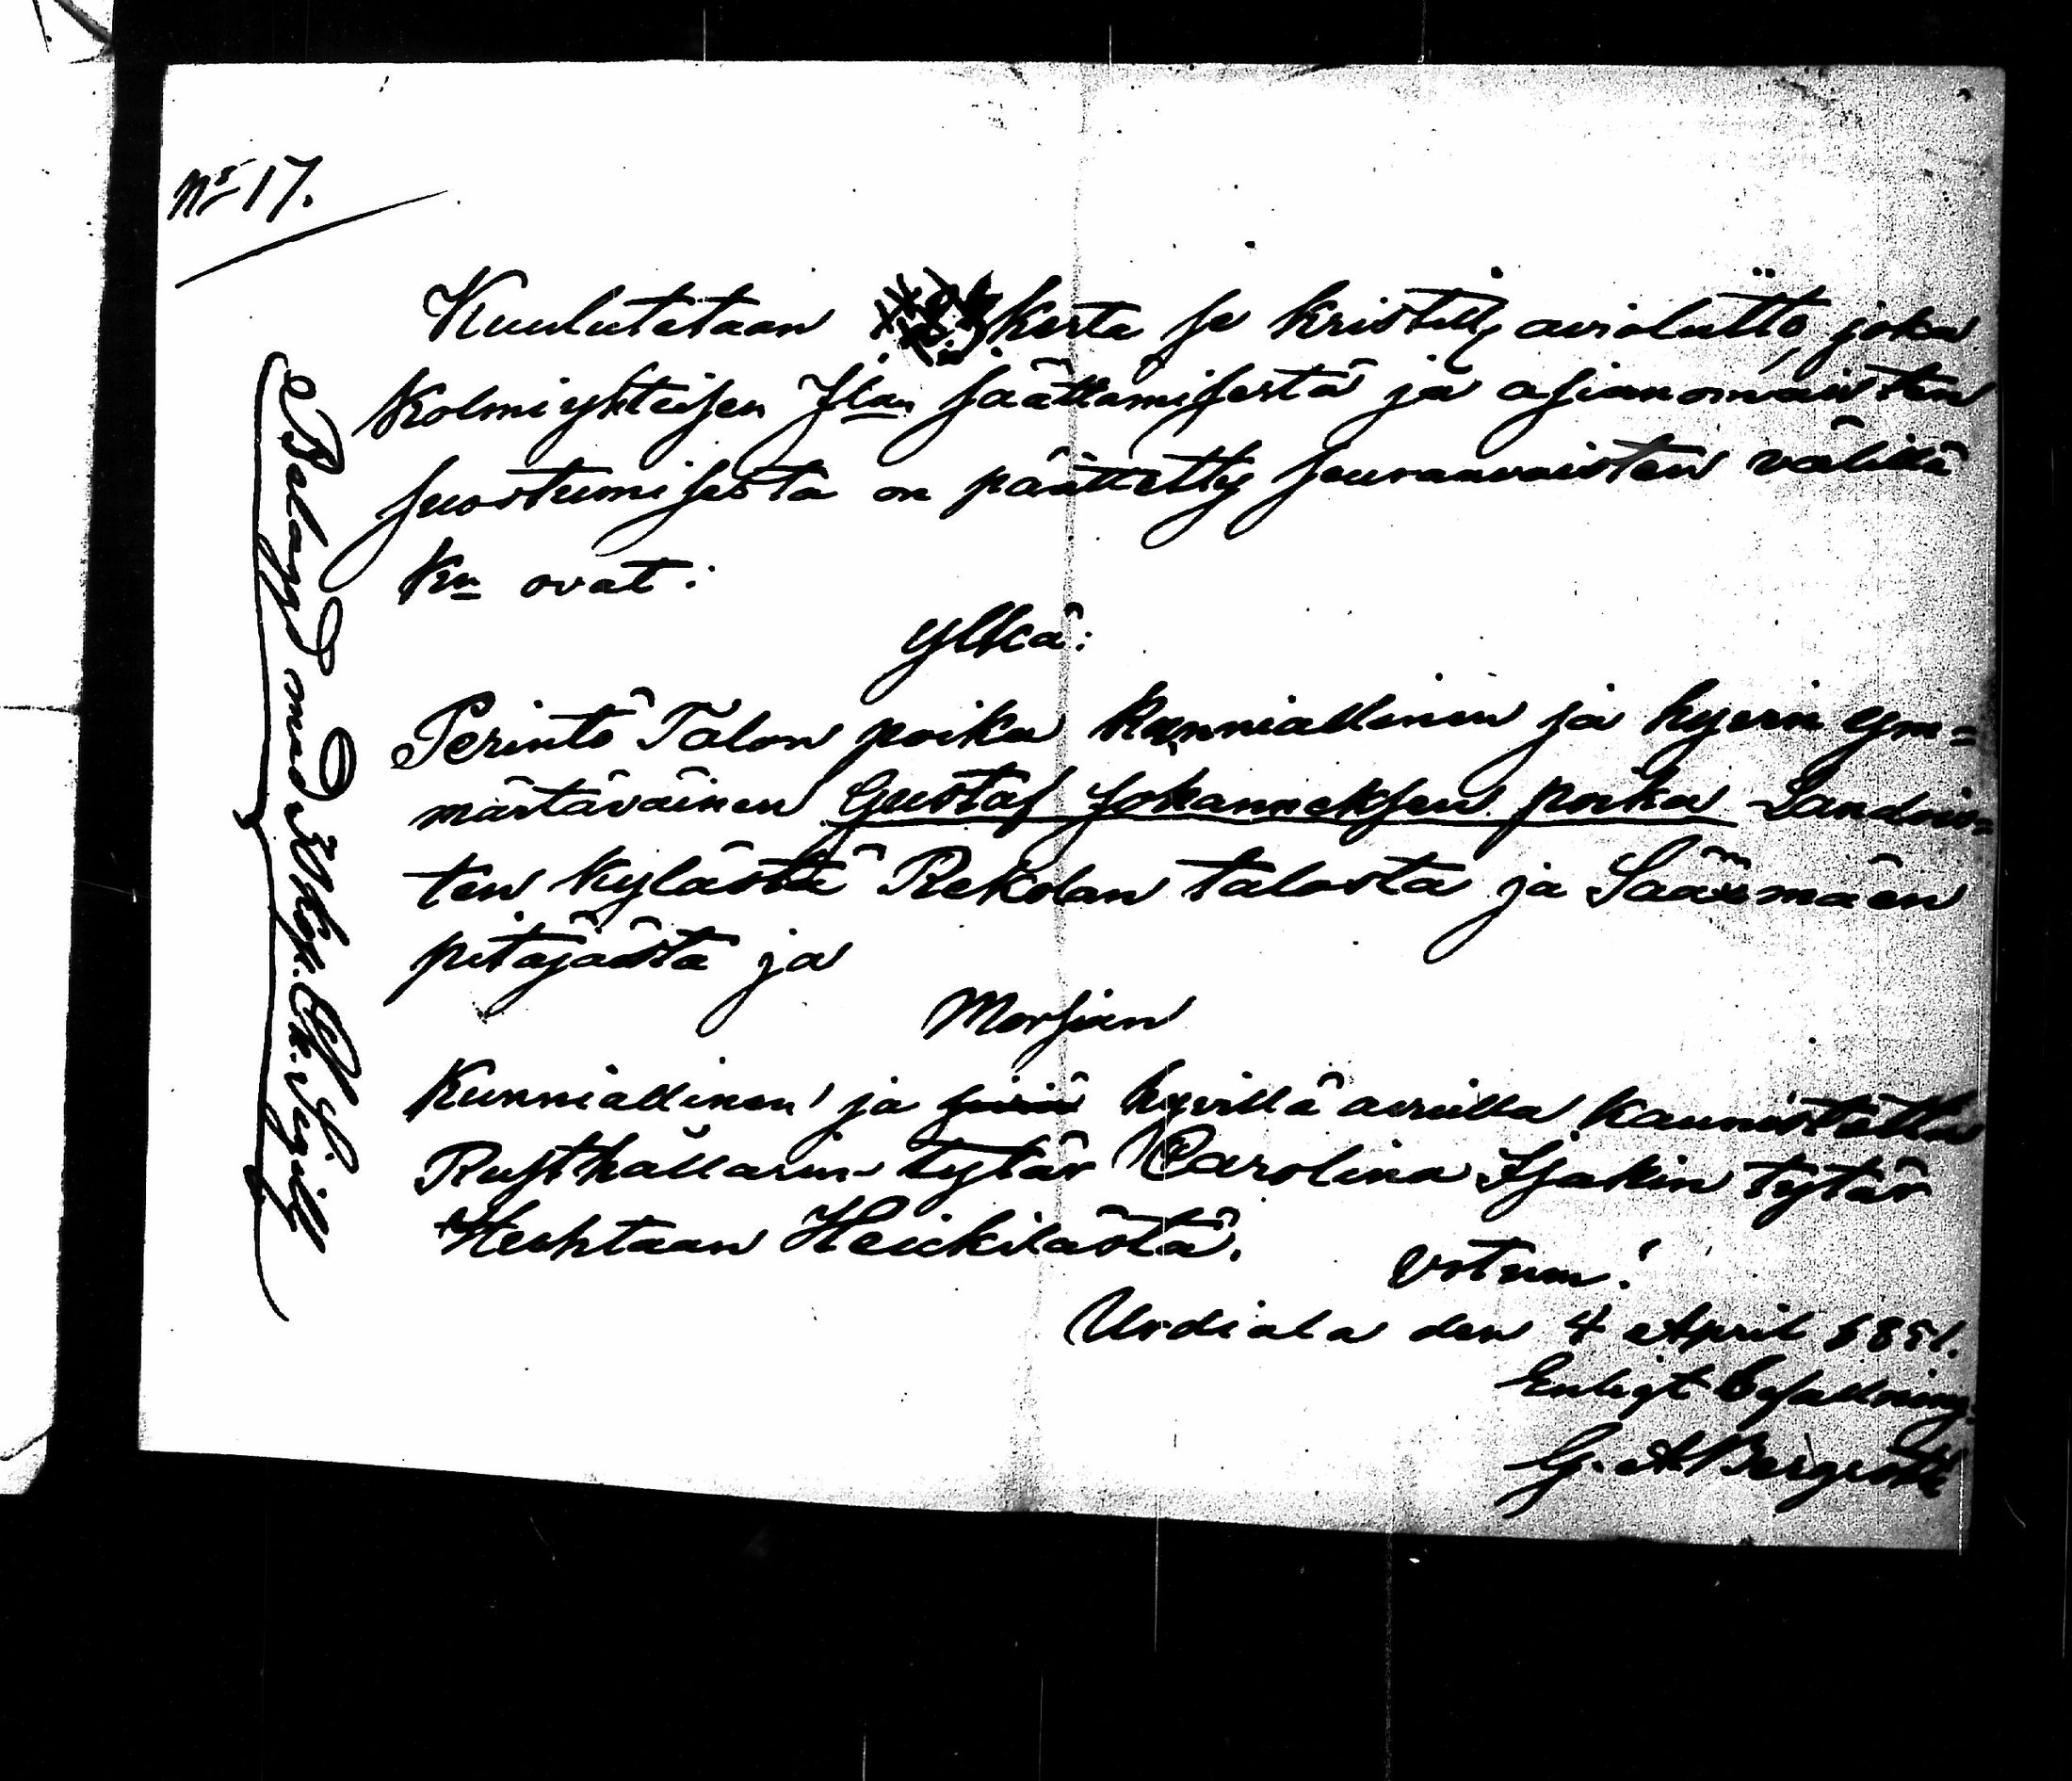 No 17.
Kuulutetaan 3 kerta se kristill. avioliitto, joka
Kolmiyhteisen Jlan säättämisestä ja asianomaisten
suostumisesta on päätetty seuraavaisten välillä
kn ovat:
Ylkä:
Perintö Talon poika kunniallinen ja hyvin ym=
märtäväinen Gustaf Johanneksen poika Sandois=
ten kylästä Rekolan talosta ja Sääxmäen
pitäjästä ja
Morsian
Kunniallinen ja hyvillä avuilla kaunistettu
Rusthållarin tytär Carolina Isakin tytär
Heickilästä.
Votum!
Urdiala den 4 April 1851.
Enligt befallning
G. A